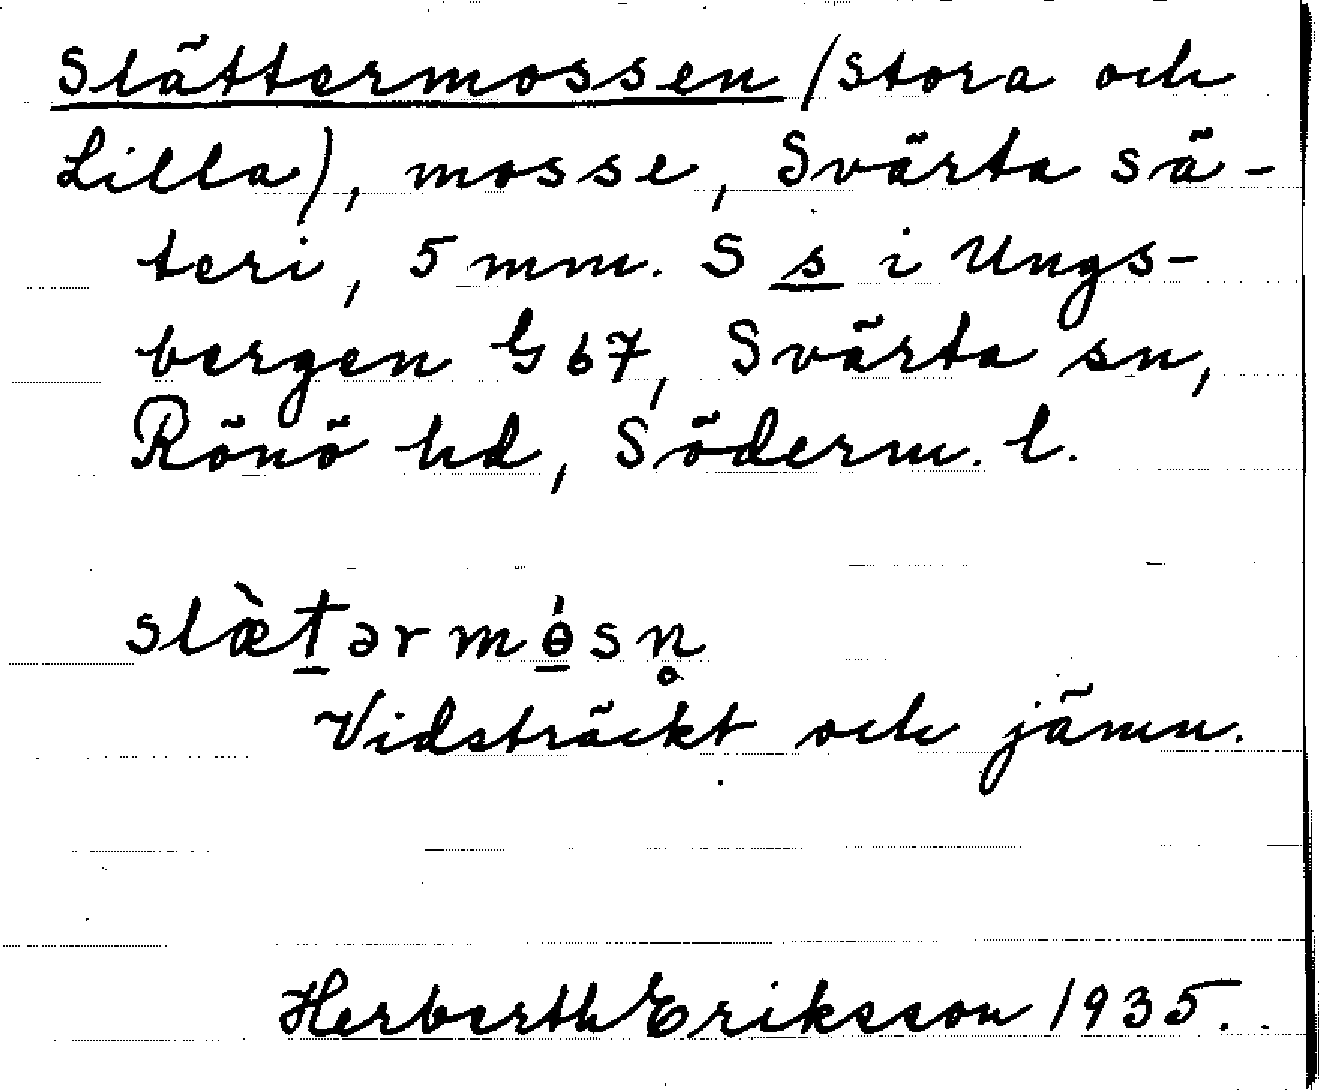 Slättermossen (Stora och
Lilla), mosse, Svärta sä-
teri, 5 mm. S s i Ungs-
bergen G 67, Svärta sn,
Rönö hd, Söderm. l.
slæ̀t̠ərmɵ̠́sn̥
Vidsträckt och jämn.
Herberth Eriksson 1935.